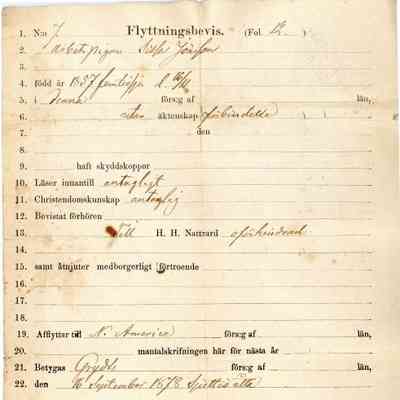 Flyttningsbevis. (Fol. 12.)
1. N:o 7.
2. Arbetspigan Sissa Jönsson
3.
4. född år 1837 femtiosju d. 16/11
5. i förseg af län,
6. äktenskap förbindelse
7. den
8.
9. haft skyddskoppor
10. Läser innantill antagligt
11. Christendomskunskap antaglig
12. Bevistat förhören
13. Till H. H. Nattvard oförhindrad
14.
15. samt åtnjuter medborgerligt förtroende
16.
17.
18.
19. Afflyttar till N. America förseg af län,
20. mantalskrifningen här för nästa år
21. Betygas Grydts förseg af län,
22. den 16 September 1878 Sjuttioåtta